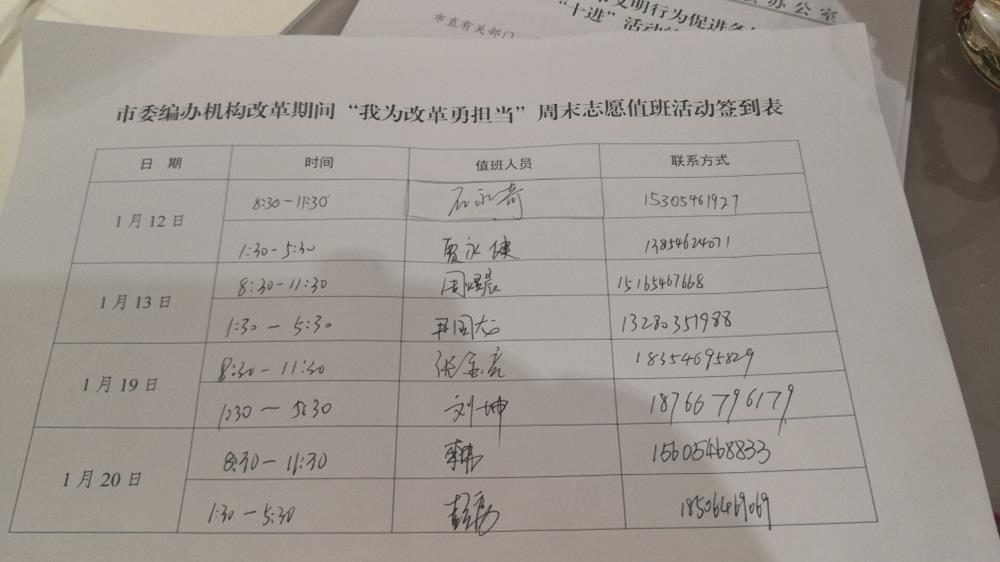 公室
文明行为促进
“十进”活动
市直有关部门
市委编办机构改革期间“我为改革勇担当”周末志愿值班活动签到表
日 期 时间 值班人员 联系方式
1月12日 8:30-11:30 石永奇 15305461927
1:30-5:30 贾永健 13854624071
1月13日 8:30-11:30 周煜晨 15165467668
1:30-5:30 13280351988
1月19日 8:30-11:30 张金亮 18354695829
1:30-5:30 刘坤 18766796179
1月20日 8:30-11:30 15605468833
1:30-5:30 18506469069